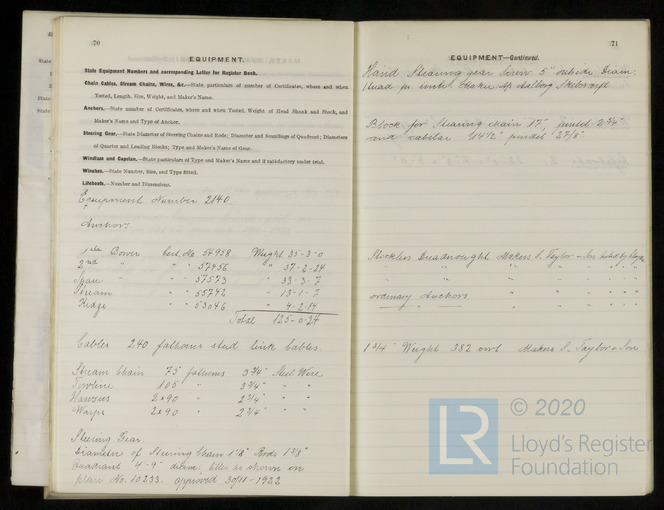 70
EQUIPMENT.
State Equipment Numbers and corresponding Letter for Register Book.
Chain Cables, Stream Chains, Wires, &c.—State particulars of number of Certificates, where and when
Tested, Length, Size, Weight, and Maker's Name.
Anchors.—State number of Certificates, where and when Tested, Weight of Head Shank and Stock, and
Maker's Name and Type of Anchor.
Steering Gear.—State Diameter of Steering Chains and Rods; Diameter and Scantlings of Quadrant; Diameters
of Quarter and Leading Blocks; Type and Maker's Name of Gear.
Windlass and Capstan.—State particulars of Type and Maker's Name and if satisfactory under trial.
Winches.—State Number, Size, and Type fitted.
Lifeboats.—Number and Dimensions.
Equipment Number 2140.
Anchors
Bower Cert. No 54958 Weight 35-3-0
2nd " " " 57456 " 37-2-24
Spare " " 57573 " 33-3-7
Stream " 55742 " 13-1-7
Kedge " 53046 " 4-2-14
Total 125-0-24
Cables 240 fathoms stud link Cables
Stream Chain 75 fathoms 3¾" Steel Wire
Towline 105 " 3¾" " "
Hawsers 2x90 " 2¼" " "
Warps 2x90 " 2¼" " "
Steering Gear
Diameter of Steering Chain 1⅛" Rods 1⅜"
Quadrant 4'-9" diam: as shown on
plan No. 10233. approved 30/11-1922
71
EQUIPMENT—Continued.
Hand Steering gear Screw 5" outside Diam:
Aalborg
Block for Steering chain 17", 2¾"
and 14½" 2⅞"
Stockless Dreadnought Makers S. Taylor & Son tested by
" " " " " "
" " " " " "
ordinary Anchors " " " "
" " " " " "
1¾" Weight 382 cwt Makers S. Taylor & Son
LR
© 2020
Lloyd's Register
Foundation